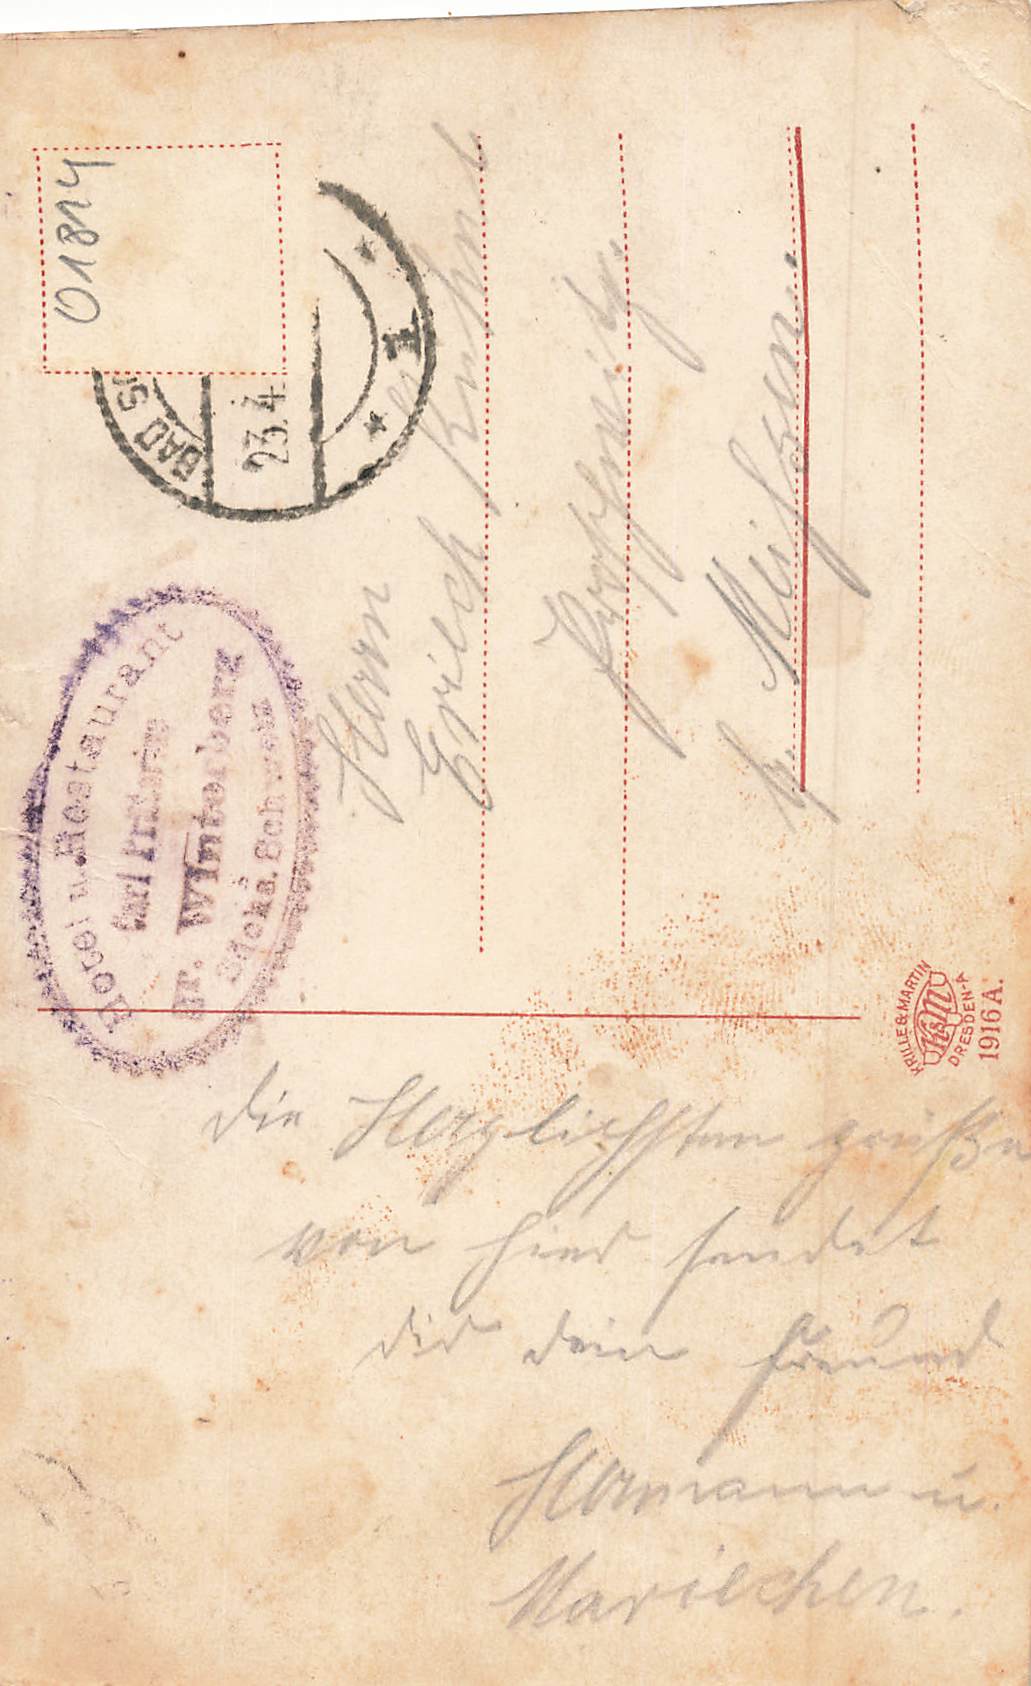 01814
BAD S
23.4
1
Hotel u. Restaurant
Carl
gr. Winterberg
Sächs. Schweiz
Herrn
Erich Kuhnt
b. Meißen.
KRILLE & MARTIN
K&M
DRESDEN-A
1916 A.
Die Herzlichsten grüße
von hier sendet
dir dein Freund
Hermann u.
Mariechen.